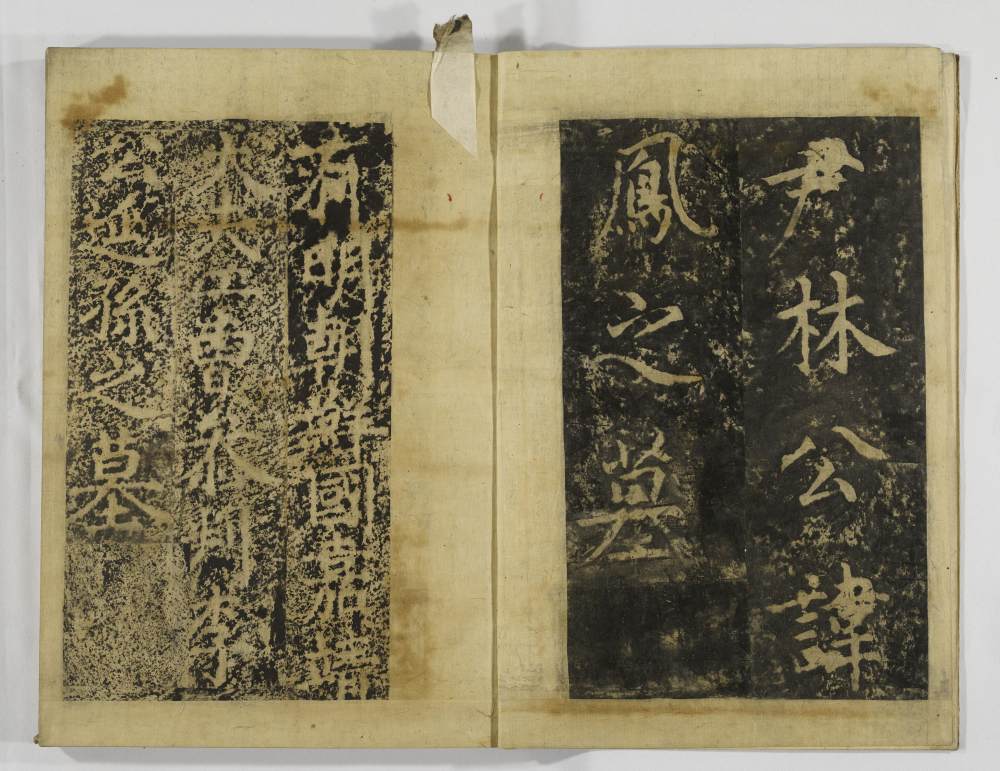 尹林公諱
鳳之墓
有明朝鮮國嘉靖
大夫工曹參判李
公遐孫之墓